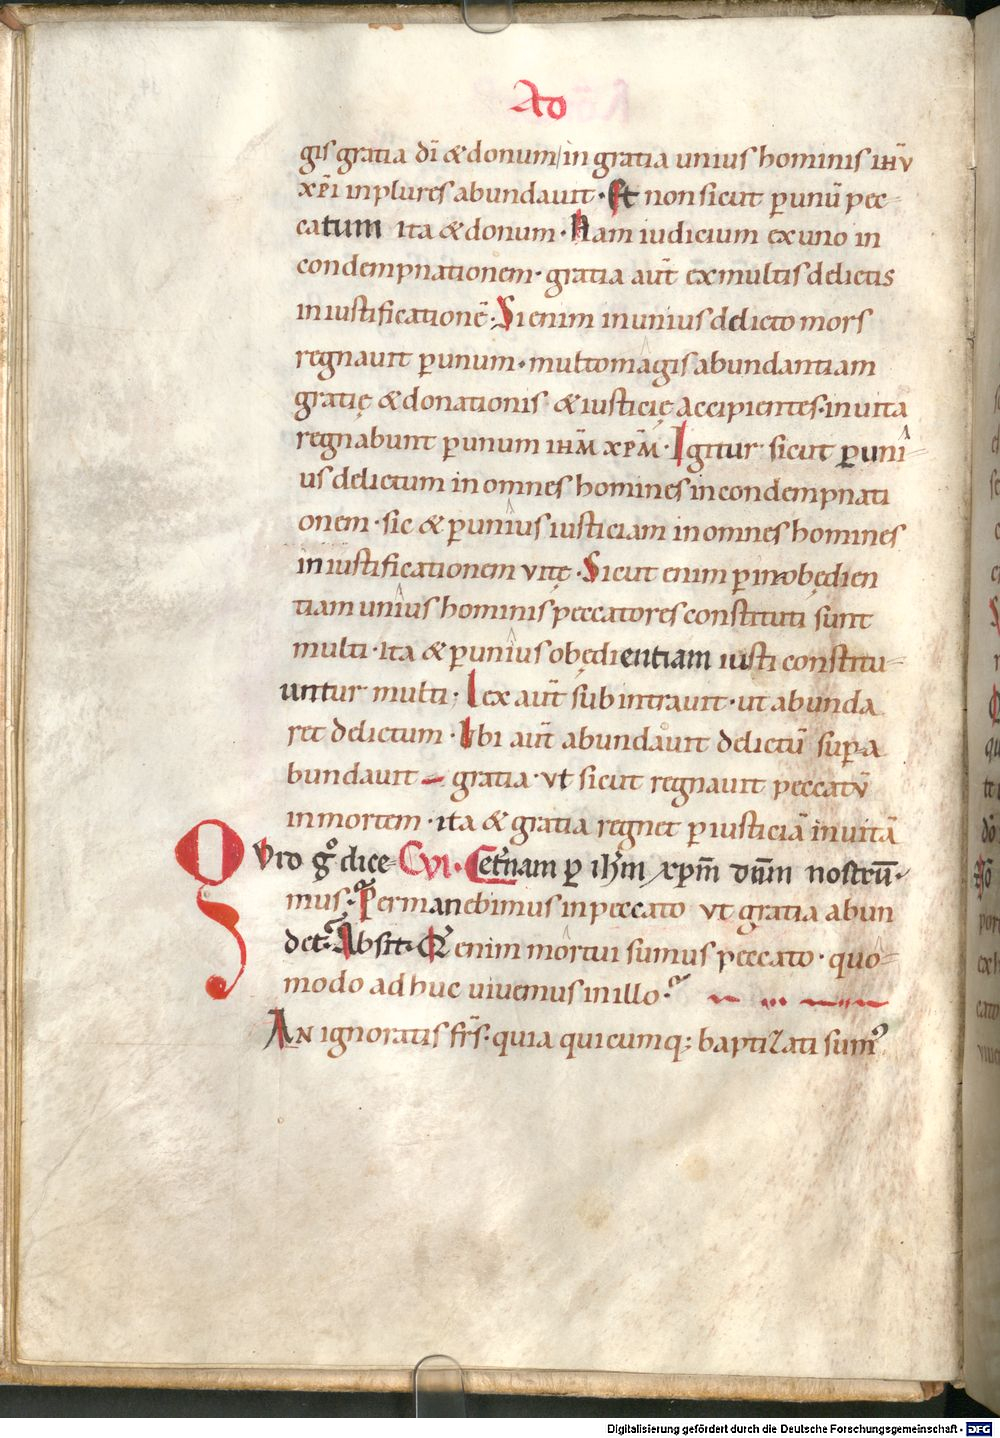 Ao
gis gratia dī & donum/in gratia unius hominis ιηῡ
xp̄i in plures abundauit · Et non sicut p̲unū pec-
catum ita & donum · Nam iudicium ex uno in
condempnationem · gratia aut̄ ex multis delictis
in iustificationē · Si enim in unius delicto mors
regnauit p̲unum · multo magis abundantiam
gratię & donationis & iusticię accipientes · in uita
regnabunt p̲unum ιηм̄ xp̄м · Igitur sicut p̲uni-
us delictum in omnes homines in condempnati
onem · sic & p̲unius iusticiam in omnes homines
in iustificationem vitę · Sicut enim p̲ inobędien
tiam unius hominis peccatores constituti sunt
multi · ita & p̲unius obędientiam iusti constitu-
untur multi · Lex aut̄ sub intrauit · ut abunda
ret delictum · Ubi aut̄ abundauit delictū sup̲a
bundauit gratia · vt sicut regnauit peccatū
in mortem · ita & gratia regnet p̲ iusticiā in uitā
QVId g̊ dice- CVI · Eet̄nam p̲ ih̄m xp̄m dn̄m nostrū ·
mus · Permanebimus in peccato vt gratia abun
det · Absit · Q̄ enim mortui sumus peccato · quo-
modo adhuc uiuemus in illo ·
AN ignoratis fr̄s · quia quicumq; baptizati sum᾿
Digitalisierung gefördert durch die Deutsche Forschungsgemeinschaft - DFG